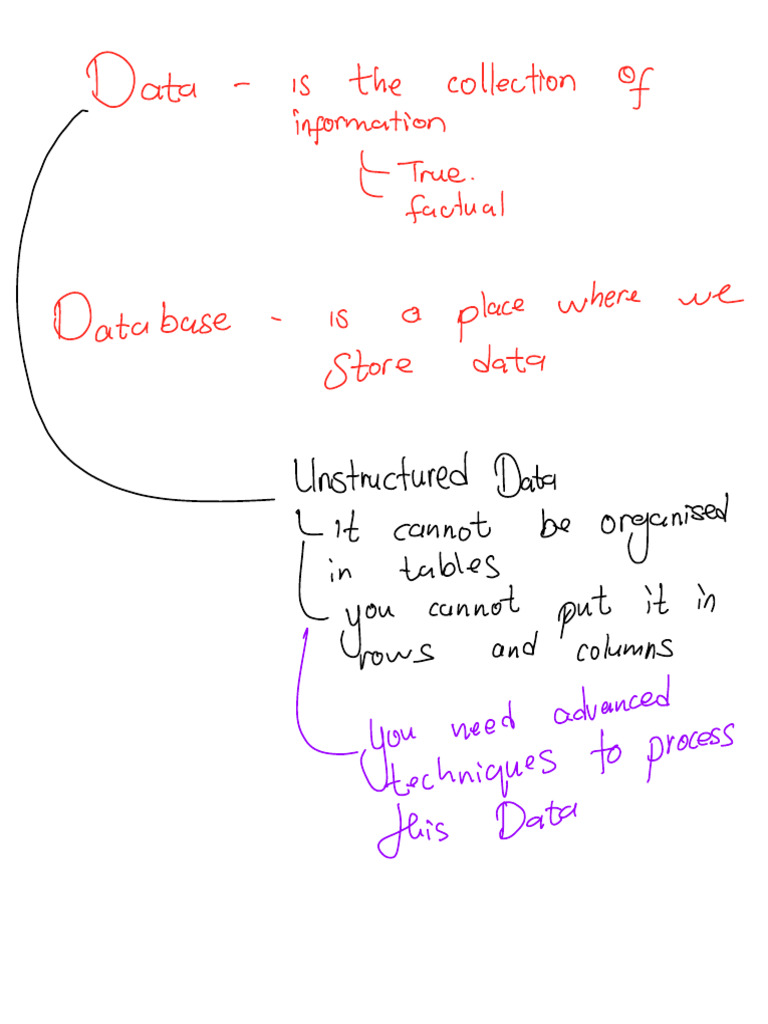 Data - is the collection of
information
True.
factual
Database - is a place where we
store data
Unstructured Data
it cannot be organised
in tables
you cannot put it in
rows and columns
you need advanced
techniques to process
this Data